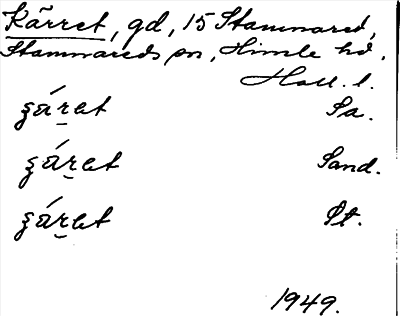 Kärret, gd, 15 Stamnared,
Stamnareds sn, Himle hd,
Hall. l.
ʒáret Sa.
ʒáret Sand.
ʒáret St.
1949.